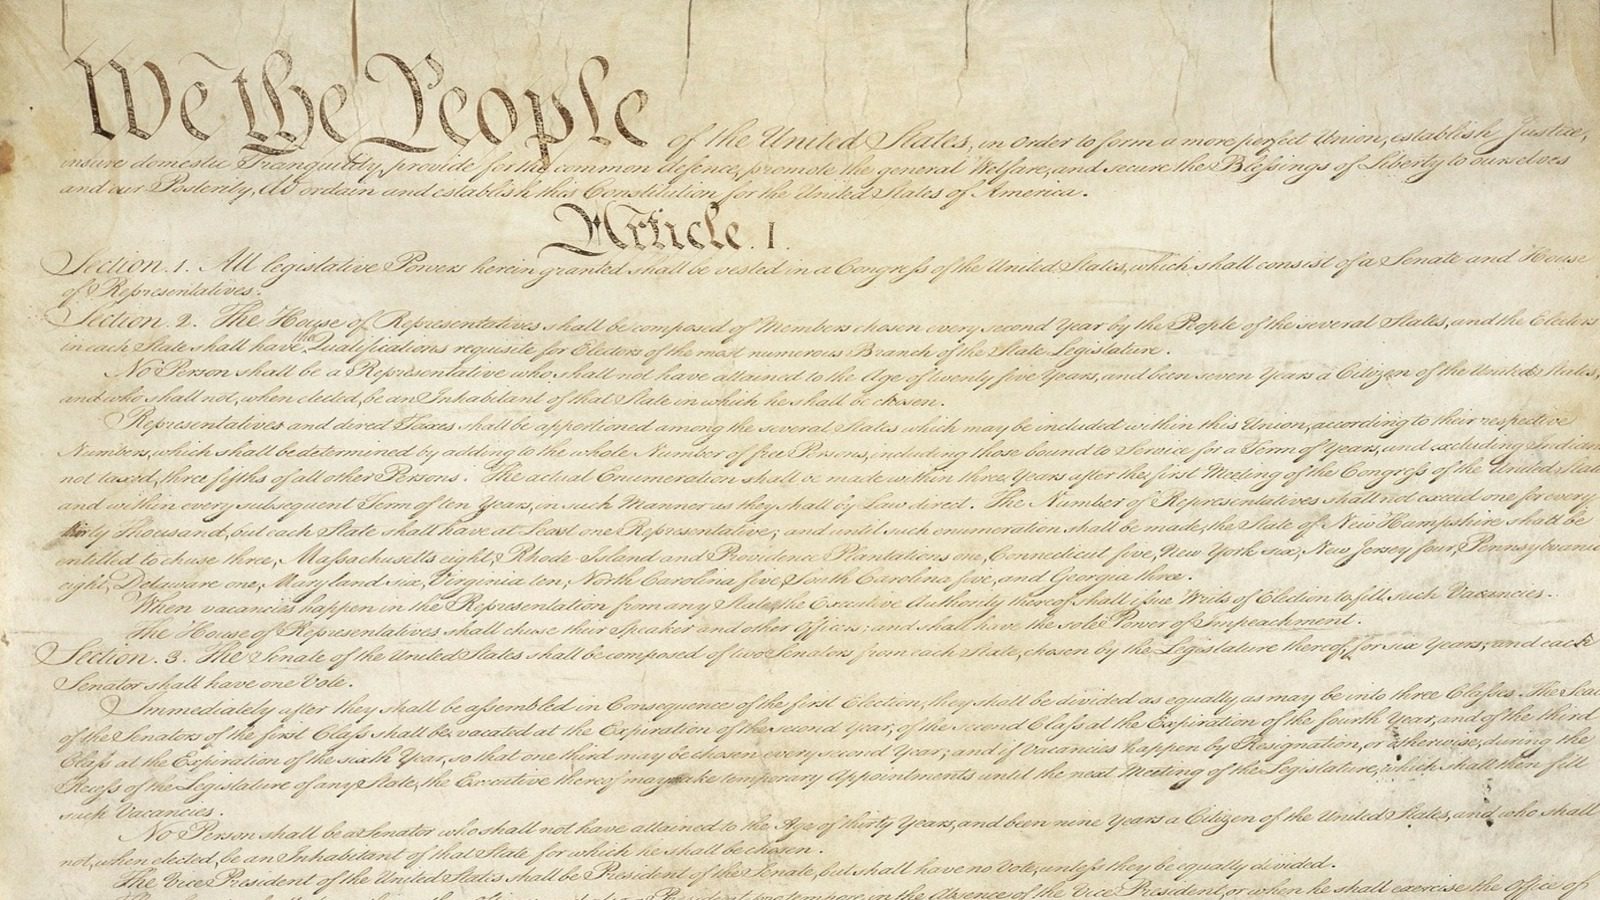 We the People of the United States, in Order to form a more perfect Union, establish Justice,
insure domestic Tranquility, provide for the common defence, promote the general Welfare, and secure the Blessings of Liberty to ourselves
and our Posterity, do ordain and establish this Constitution for the United States of America.
Article. I.
Section. 1. All legislative Powers herein granted shall be vested in a Congress of the United States, which shall consist of a Senate and House
of Representatives.
Section. 2. The House of Representatives shall be composed of Members chosen every second Year by the People of the several States, and the Electors
in each State shall have the Qualifications requisite for Electors of the most numerous Branch of the State Legislature.
No Person shall be a Representative who shall not have attained to the Age of twenty five Years, and been seven Years a Citizen of the United States,
and who shall not, when elected, be an Inhabitant of that State in which he shall be chosen.
Representatives and direct Taxes shall be apportioned among the several States which may be included within this Union, according to their respective
Numbers, which shall be determined by adding to the whole Number of free Persons, including those bound to Service for a Term of Years, and excluding Indians
not taxed, three fifths of all other Persons. The actual Enumeration shall be made within three Years after the first Meeting of the Congress of the United States
and within every subsequent Term of ten Years, in such Manner as they shall by Law direct. The Number of Representatives shall not exceed one for every
thirty Thousand, but each State shall have at Least one Representative; and until such enumeration shall be made, the State of New Hampshire shall be
entitled to chuse three, Massachusetts eight, Rhode Island and Providence Plantations one, Connecticut five, New York six, New Jersey four, Pennsylvania
eight, Delaware one, Maryland six, Virginia ten, North Carolina five, South Carolina five, and Georgia three.
When vacancies happen in the Representation from any State, the Executive Authority thereof shall issue Writs of Election to fill such Vacancies.
The House of Representatives shall chuse their Speaker and other Officers; and shall have the sole Power of Impeachment.
Section. 3. The Senate of the United States shall be composed of two Senators from each State, chosen by the Legislature thereof, for six Years; and each
Senator shall have one Vote.
Immediately after they shall be assembled in Consequence of the first Election, they shall be divided as equally as may be into three Classes. The Seats
of the Senators of the first Class shall be vacated at the Expiration of the second Year, of the second Class at the Expiration of the fourth Year, and of the third
Class at the Expiration of the sixth Year, so that one third may be chosen every second Year; and if Vacancies happen by Resignation, or otherwise, during the
Recess of the Legislature of any State, the Executive thereof may make temporary Appointments until the next Meeting of the Legislature, which shall then fill
such Vacancies.
No Person shall be a Senator who shall not have attained to the Age of thirty Years, and been nine Years a Citizen of the United States, and who shall
not, when elected, be an Inhabitant of that State for which he shall be chosen.
The Vice President of the United States shall be President of the Senate, but shall have no Vote, unless they be equally divided.
President pro tempore, in the Absence of the Vice President, or when he shall exercise the Office of